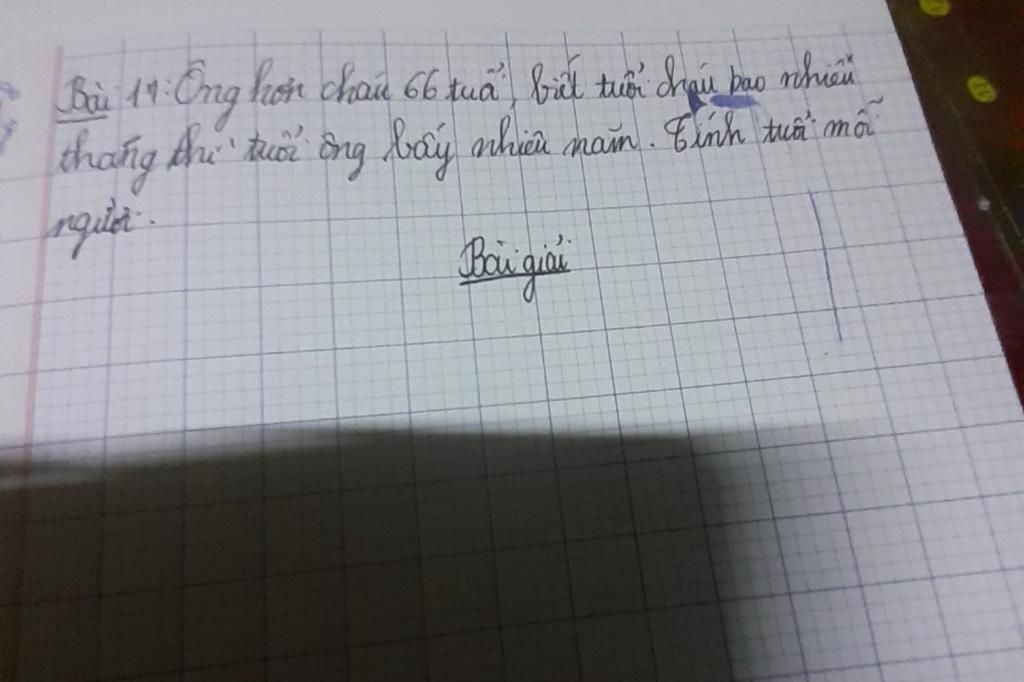 Bài 19: Ông hơn cháu 66 tuổi, biết tuổi cháu bao nhiêu
tháng thì tuổi ông bấy nhiêu năm. Tính tuổi mỗi
người.
Bài giải